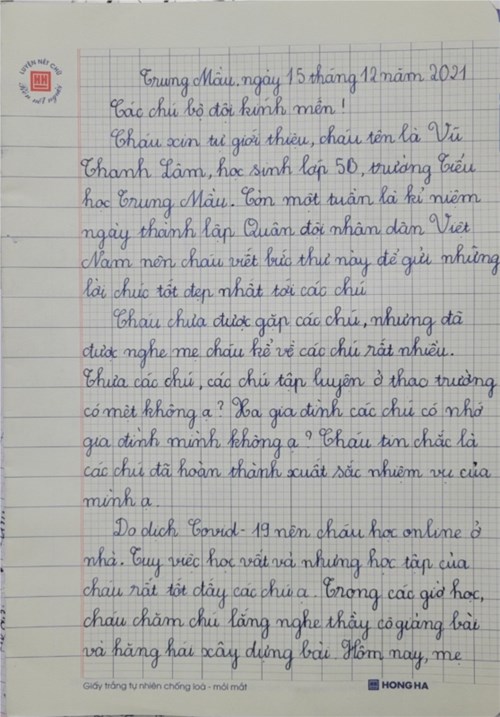 LUYỆN NÉT CHỮ
HH
Trung Mầu, ngày 15 tháng 12 năm 2021
Các chú bộ đội kính mến!
Cháu xin tự giới thiệu, cháu tên là Vũ
Thanh Lâm, học sinh lớp 5D, trường Tiểu
học Trung Mầu. Còn một tuần là kỉ niệm
ngày thành lập Quân đội nhân dân Việt
Nam nên cháu viết bức thư này để gửi những
lời chúc tốt đẹp nhất tới các chú
Cháu chưa được gặp các chú, nhưng đã
được nghe mẹ cháu kể về các chú rất nhiều.
Thưa các chú, các chú tập luyện ở thao trường
có mệt không ạ? Xa gia đình các chú có nhớ
gia đình mình không ạ? Cháu tin chắc là
các chú đã hoàn thành xuất sắc nhiệm vụ của
mình ạ.
Do dịch Covid-19 nên cháu học online ở
nhà. Tuy việc học vất vả nhưng học tập của
cháu rất tốt đấy các chú ạ. Trong các giờ học,
cháu chăm chú lắng nghe thầy cô giảng bài
và hăng hái xây dựng bài. Hôm nay, mẹ
Giấy trắng tự nhiên chống loá - mỏi mắt
HH HONG HA